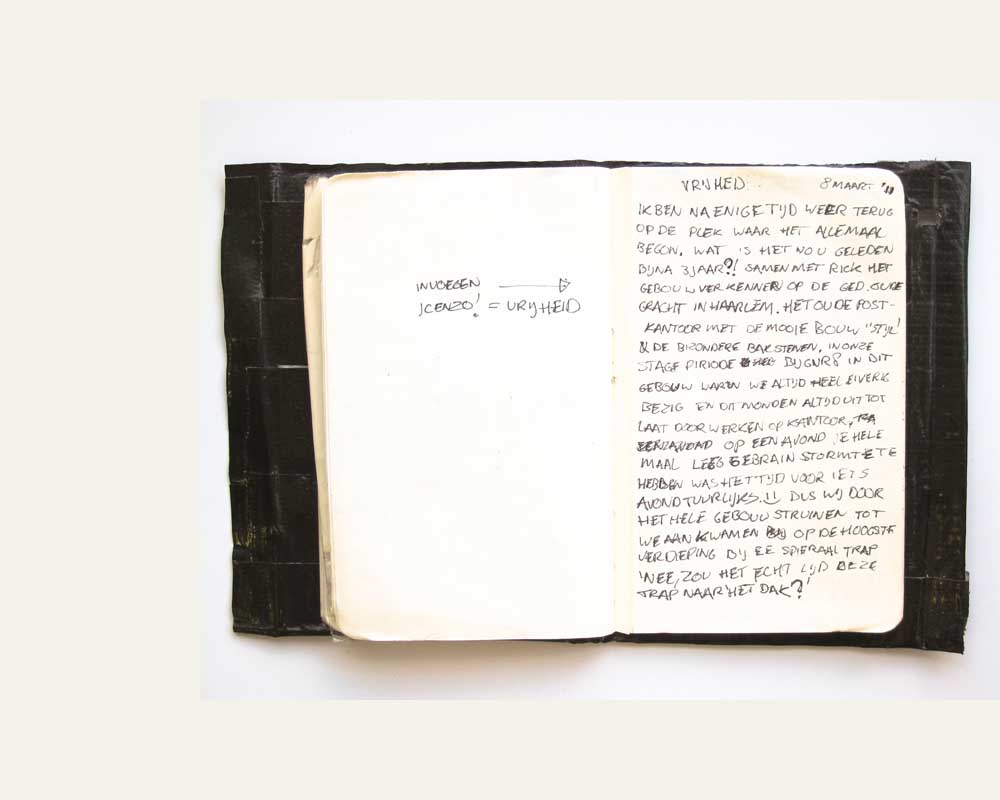 INVOEGEN →
JCENZO! = VRIJHEID
VRIJHEID. 8 MAART '11
IK BEN NA ENIGE TIJD WEER TERUG
OP DE PLEK WAAR HET ALLEMAAL
BEGON. WAT IS HET NOU GELEDEN
BIJNA 3 JAAR?! SAMEN MET RICK HET
GEBOUW VERKENNEN OP DE GED. OUDE
GRACHT IN HAARLEM. HET OUDE POST-
KANTOOR MET DE MOOIE BOUW "STIJL'
& DE BIZONDERE BAKSTENEN. IN ONZE
STAGE PIRIODE BIJ GNR8 IN DIT
GEBOUW WAREN WE ALTIJD HEEL EIVERIG
BEZIG EN DIT MONDEN ALTIJD UIT TOT
LAAT DOORWERKEN OP KANTOOR,
OP EEN AVOND JE HELE
MAAL LEEG GEBRAINSTORMT E TE
HEBBEN WAS HET TIJD VOOR IETS
AVONDTUURLIJKS. DUS WIJ DOOR
HET HELE GEBOUW STRUINEN TOT
WE AAN KWAMEN OP DE HOOGSTE
VERDIEPING BIJ EE SPIERAAL TRAP
'NEE, ZOU HET ECHT LIJD DEZE
TRAP NAAR HET DAK?'